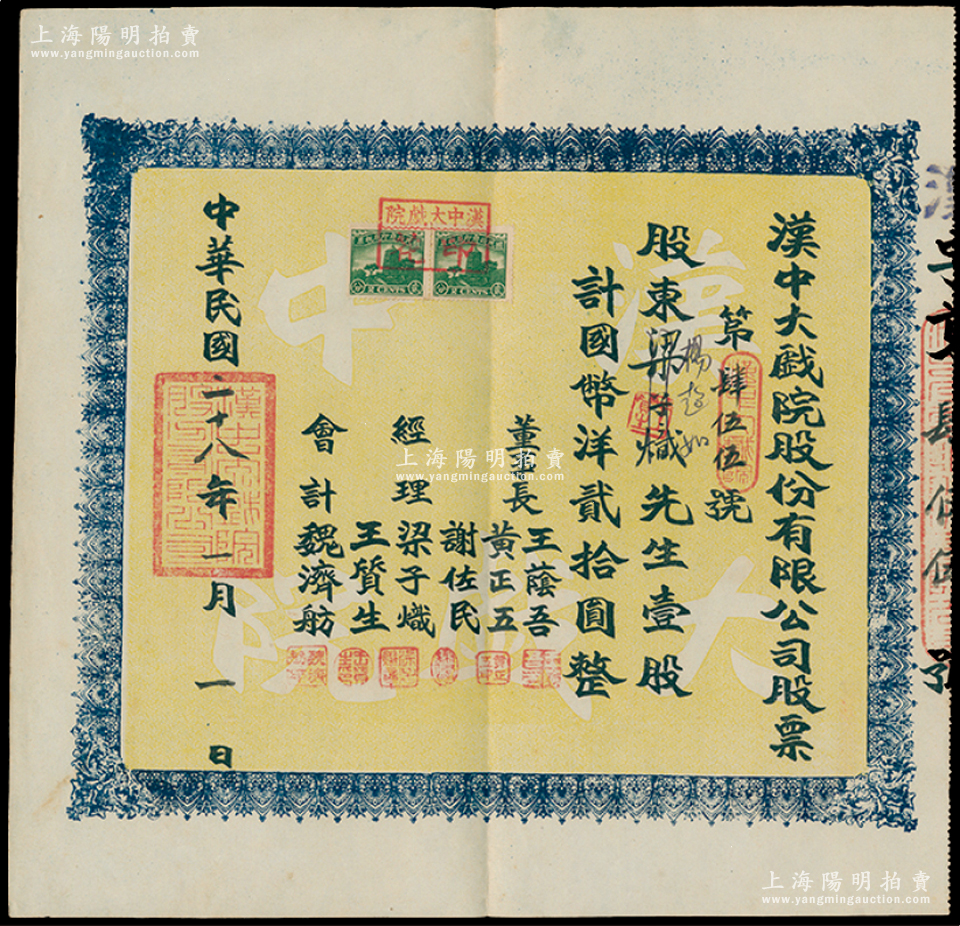 上海陽明拍賣
www.yangmingauction.com
漢中大戲院股份有限公司股票
第肆伍伍號
股東梁子熾先生壹股
楊起如
計國幣洋貳拾圓整
董事長
王蔭吾
黃正五
謝佐民
經理
梁子熾
王質生
會計
魏濟舫
中華民國二十八年一月一日
漢中大戲院
2 CENTS
2 CENTS
漢中
大戲院
上海陽明拍賣
www.yangmingauction.com
上海陽明拍賣
www.yangmingauction.com